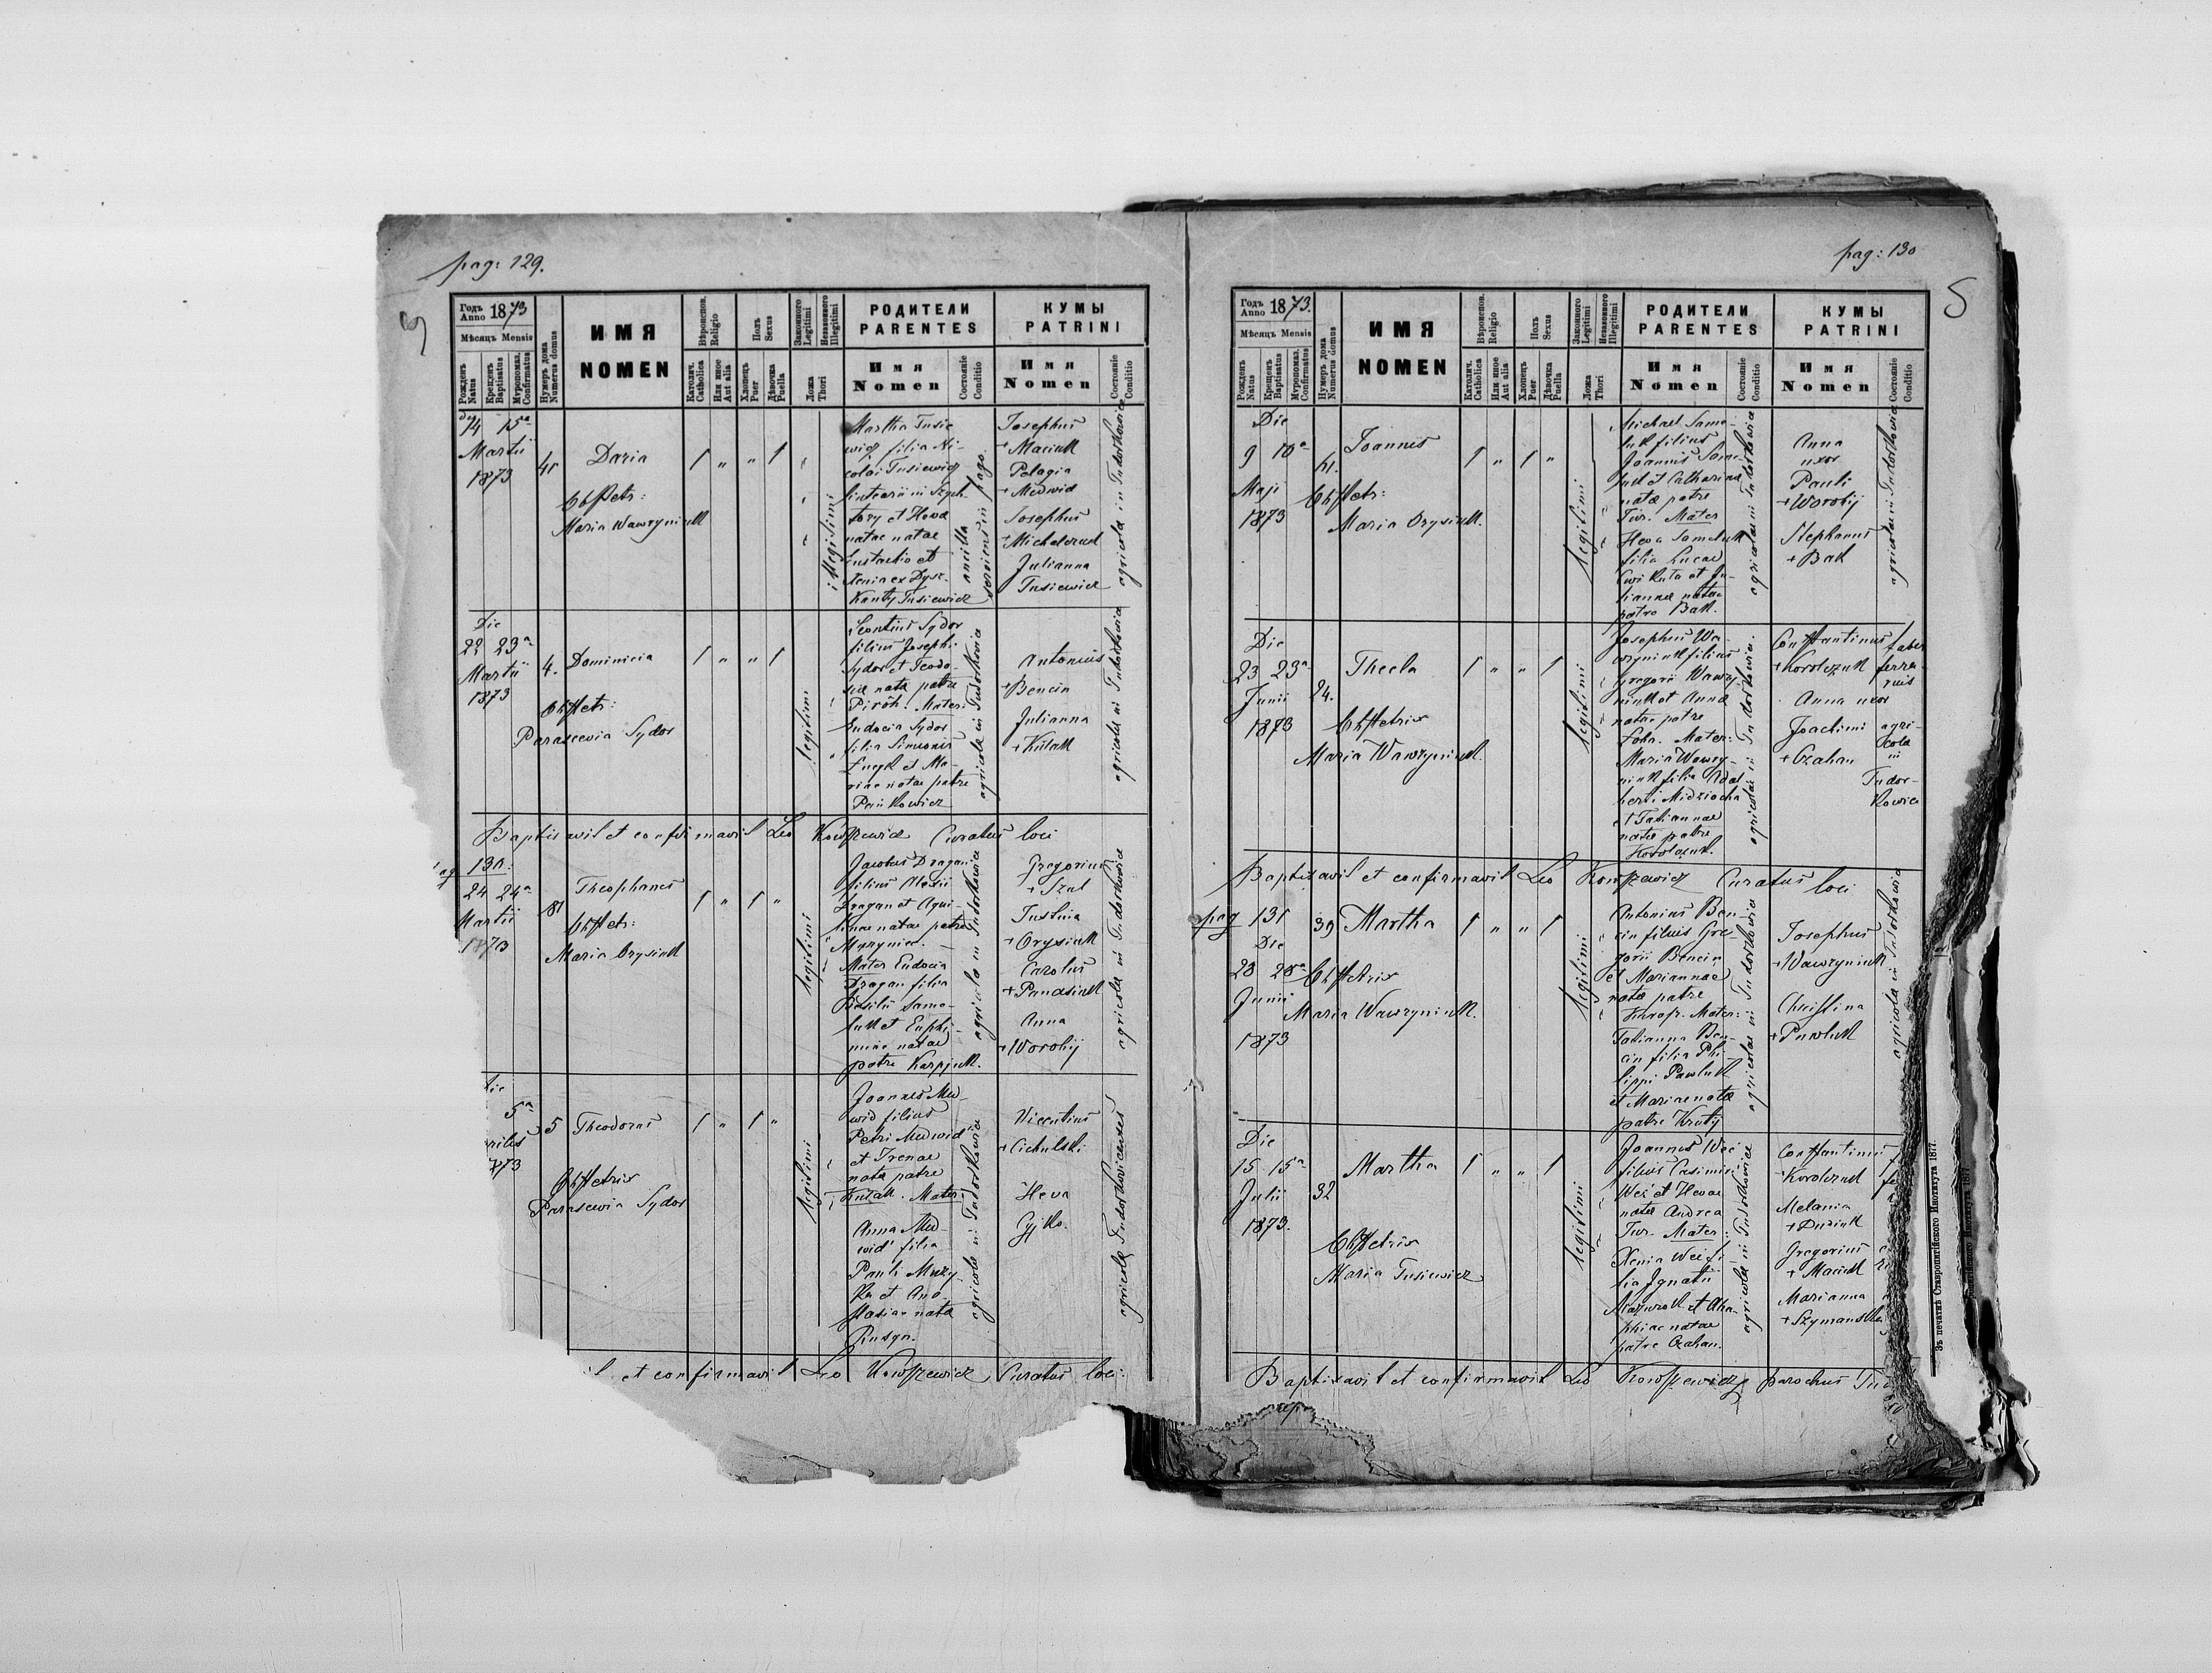 pag: 129.
Годъ Anno 1873
Мѣсяцъ Mensis
Рожденъ Natus
Крещенъ Baptisatus
Муропомаз. Confirmatus
Нумеръ дома Numerus domus
ИМЯ
NOMEN
Вѣроиспов. Religio
Католич. Catholica
Или иное Aut alia
Полъ Sexus
Хлопецъ Puer
Дѣвочка Puella
Законного Legitimi
Незаконного Illegitimi
Ложа Thori
РОДИТЕЛИ
PARENTES
Имя
Nomen
Состояніе Conditio
КУМЫ
PATRINI
Имя
Nomen
Состояніе Conditio
14 15a
Martii
1873
41
Daria
Obstetr:
Maria Wawryniuk
1 " " 1
illegitimi
Martha Tusie
wicz filia Ni-
colai Tusiewicz
natae natae
Eustachio et
Kanty Tusiewicz
ancilla
serviens in pago.
Josephus
+ Maciuk
Pelagia
+ Medwid
Josephus
+ Michalczuk
Julianna
Tusiewicz
agricolae in Tudorkowice
Die
22 23a
Martii
1873
4.
Dominicia
Obstetr:
Parascewia Sydor
1 " " 1
legitimi
Leontius Sydor
filius Josephi
Sydor et Teodo-
siae natae patre
Piroh. Mater:
Eudocia Sydor
filia Simeonis
et Ma-
riae natae patre
Pańkowicz
agricolae in Tudorkowice
Antonius
+ Bencin
Julianna
+ Kułak
agricolae in Tudorkowice
Baptisavit et confirmavit Leo Kowszewicz Curatus loci
130:
24 24a
Martii
1873
81
Theophanes
Obstetr:
Maria Orysiuk
1 " 1 "
legitimi
Jacobus Dragan
filius Alexii
Dragan et Aqui-
linae natae patre
Mater Eudocia
Dragan filia
Basilii Same-
luk et Euphi-
miae natae
patre Karpjuk.
agricolae in Tudorkowice
Gregorius
+ Szul
Justina
+ Orysiuk
Carolus
+ Panasiuk
Anna
+ Worobij
agricolae in Tudorkowice
5a
1873
5
Theodorus
Obstetrix
Parascewia Sydor
1 " 1 "
legitimi
Joannes Med-
wid filius
Petri Medwid
et Irenae
nata patre
Kułak. Mater:
Anna Med-
wid filia
Pauli Muzy-
ka et Ana-
stasiae nata
Rusyn.
agricolae in Tudorkowice
Vicentius
+ Cichulski
Heva
Cyjko.
agricolae Tudorkowicenses
et confirmavit Leo Kowszewicz Curatus loci.
pag: 130
5
Годъ Anno 1873.
Мѣсяцъ Mensis
Рожденъ Natus
Крещенъ Baptisatus
Муропомаз. Confirmatus
Нумеръ дома Numerus domus
ИМЯ
NOMEN
Вѣроиспов. Religio
Католич. Catholica
Или иное Aut alia
Полъ Sexus
Хлопецъ Puer
Дѣвочка Puella
Законного Legitimi
Незаконного Illegitimi
Ложа Thori
РОДИТЕЛИ
PARENTES
Имя
Nomen
Состояніе Conditio
КУМЫ
PATRINI
Имя
Nomen
Состояніе Conditio
Die
9 10a
Maji
1873
Joannes
Obstetr:
Maria Orysiuk.
1 " 1 "
legitimi
Michael Same-
luk filius
Joannis Same-
luk et Catharinae
natae patre
Tur. Mater
Heva Sameluk
filia Lucae
Ćwikuła et Ju-
liannae natae
patre Bak.
agricolae in Tudorkowice
Anna
uxor
Pauli
+ Worobij
Stephanus
+ Bak
agricolae in Tudorkowice
Die
23 23a
Junii
1873
24.
Thecla
Obstetrix
Maria Wawryniuk.
1 " " 1
legitimi
Josephus Wa-
wryniuk filius
Gregorii Wawry-
niuk et Annae
natae patre
Mater:
Maria Wawry-
niuk filia Adal-
berti Midziocha
et Tatiannae
natae patre
Korolczuk.
agricolae in Tudorkowice.
Constantinus
+ Korolczuk
Anna uxor
Joachimi
+ Czahan
faber
ferra-
rius
agri-
cola
in
Tudor-
kowice
Baptisavit et confirmavit Leo Kowszewicz Curatus loci
pag 131
Die
28 28a
Junii
1873
39
Martha
Obstetrix
Maria Wawryniuk.
1 " " 1
legitimi
Antonius Ben-
cin filius Gre-
gorii Bencin
et Mariannae
natae patre
Mater:
Tatianna Ben-
cin filia Phi-
lippi Pawluk
et Mariae natae
patre Kruty
agricolae in Tudorkowice
Josephus
+ Wawryniuk
Christina
+ Pawluk
agricolae in Tudorkowice
Die
15 15a
Julii
1873.
32
Martha
Obstetrix
Maria Tusiewicz
1 " " 1
legitimi
Joannes Weć
filius Casimiri
Weć et Hevae
natae Andrea
Tur. Mater:
Xenia Weć fi-
lia Ignatii
Mazurok et Aha-
phiae natae
patre Czahan.
agricolae in Tudorkowice
Constantinus
+ Korolczuk
Melania
+ Dusiuk
Gregorius
+ Maciuk
Marianna
+ Szymanska
Baptisavit et confirmavit Leo Kowszewicz parochus
Зъ печатнѣ Ставропигійского Института 1877.
Института 1877.